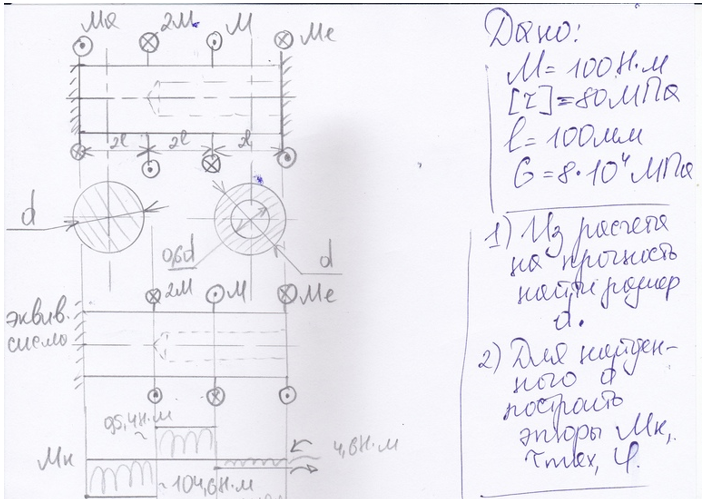 Ma 2M M Me
2l 2l 2l
d
0,6d
d
2M M Me
эквив.
система
95,4Н·м
Мк
4,6Н·м
~104,6Н·м
Дано:
M = 100Н·м
[τ] = 80МПа
l = 100мм
G = 8·10⁴ МПа
1) Из расчета
на прочность
найти размер
d.
2) Для найден-
ного d
построить
эпюры Мк,
τmax, φ.